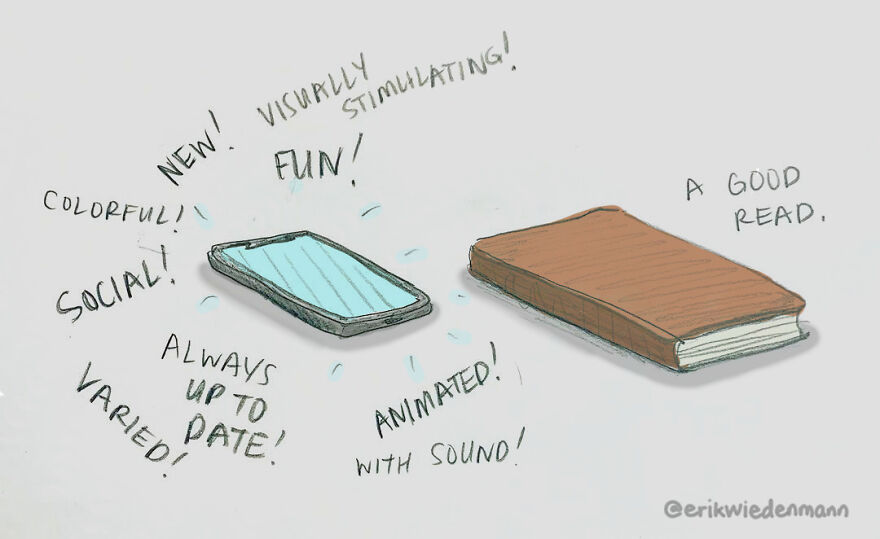 VISUALLY
STIMULATING!
NEW!
FUN!
COLORFUL!
SOCIAL!
ALWAYS
UP TO
DATE!
VARIED!
ANIMATED!
WITH SOUND!
A GOOD
READ.
@erikwiedenmann